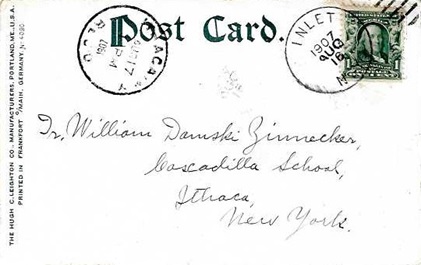 Post Card.
ITHACA, N.Y.
AUG 17
1 PM
1907
REC'D
INLET
1907
AUG
16
N.Y.
THE HUGH C. LEIGHTON CO., MANUFACTURERS, PORTLAND, ME., U.S.A.
PRINTED IN FRANKFORT O/MAIN, GERMANY. No 4090
Dr. William Damski Zinnecker,
Cascadilla School,
Ithaca,
New York.